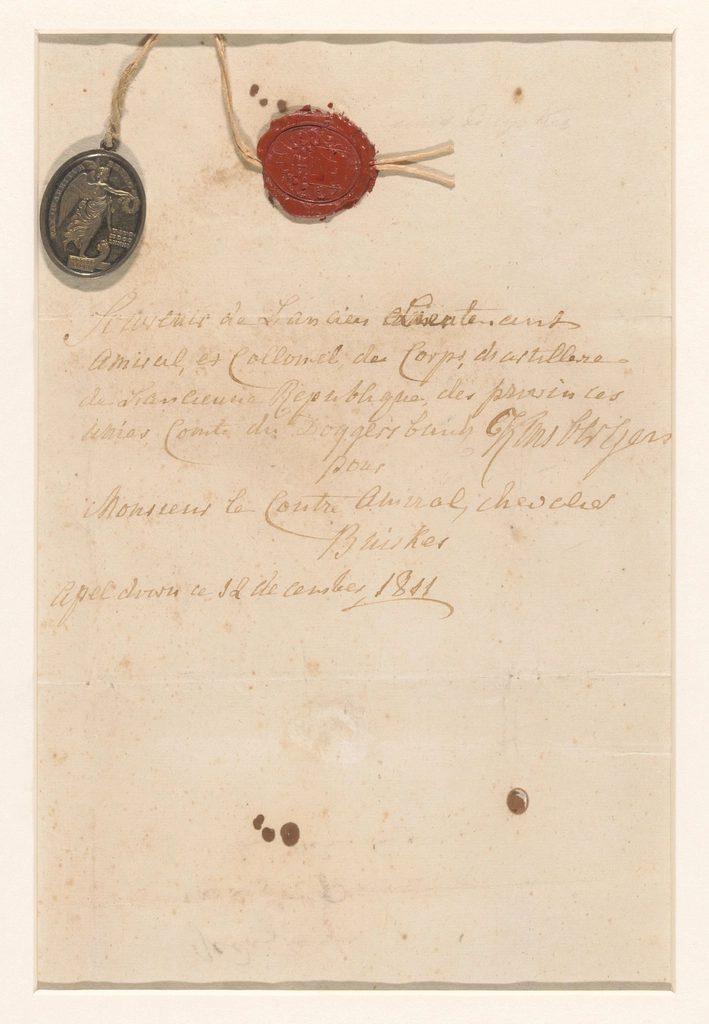 Souvenir de Lancien Lieutenant
Amiral, et Collonel du Corps, d'artillerie
de Lancienne Republique des provinces
Unies Comte du Doggersbanc Kinsbergen
pour
Monsieur le Contre Amiral, chevalier
Buiskes
Apeldoorn ce 12 december 1811